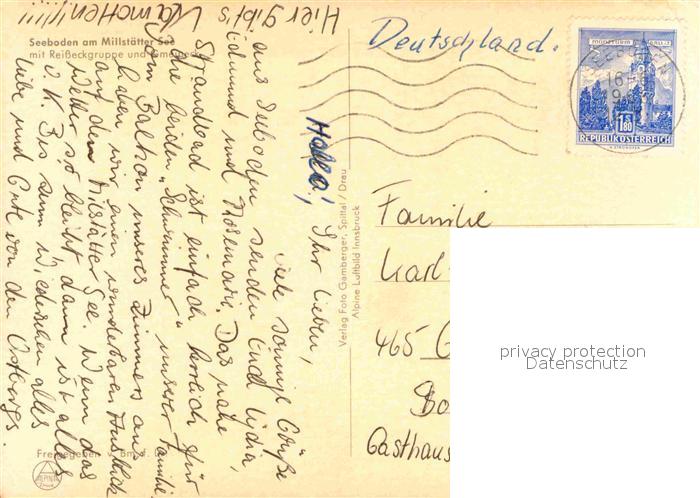 Hier gibt's
Kamotten!!!!!!
Seeboden am Millstätter See
mit Reißeckgruppe und
Hallo!
Ihr Lieben,
Viele sonnige Grüße
aus Seeboden senden Euch Lydia,
Edmund und Rosemarie. Das nahe
Strandbad ist einfach herrlich für
die beiden „Schwimmer" unserer Familie.
Vom Balkon unseres Zimmers aus
haben wir einen wunderbaren Ausblick
auf den Millstätter See. Wenn das
Wetter so bleibt, dann ist alles
o. K. Bis zum Wiedersehen alles
Liebe und Gute von den
Freigegeben v. Bm. f.
ALPINE
Verlag Foto Gamberger, Spittal / Drau
Alpine Luftbild Innsbruck
Deutschland.
MÜNZTURM
SEEBODEN
16
1.80
S
REPUBLIK ÖSTERREICH
Familie
Karl
465 G
Bo
Gasthaus
privacy protection
Datenschutz